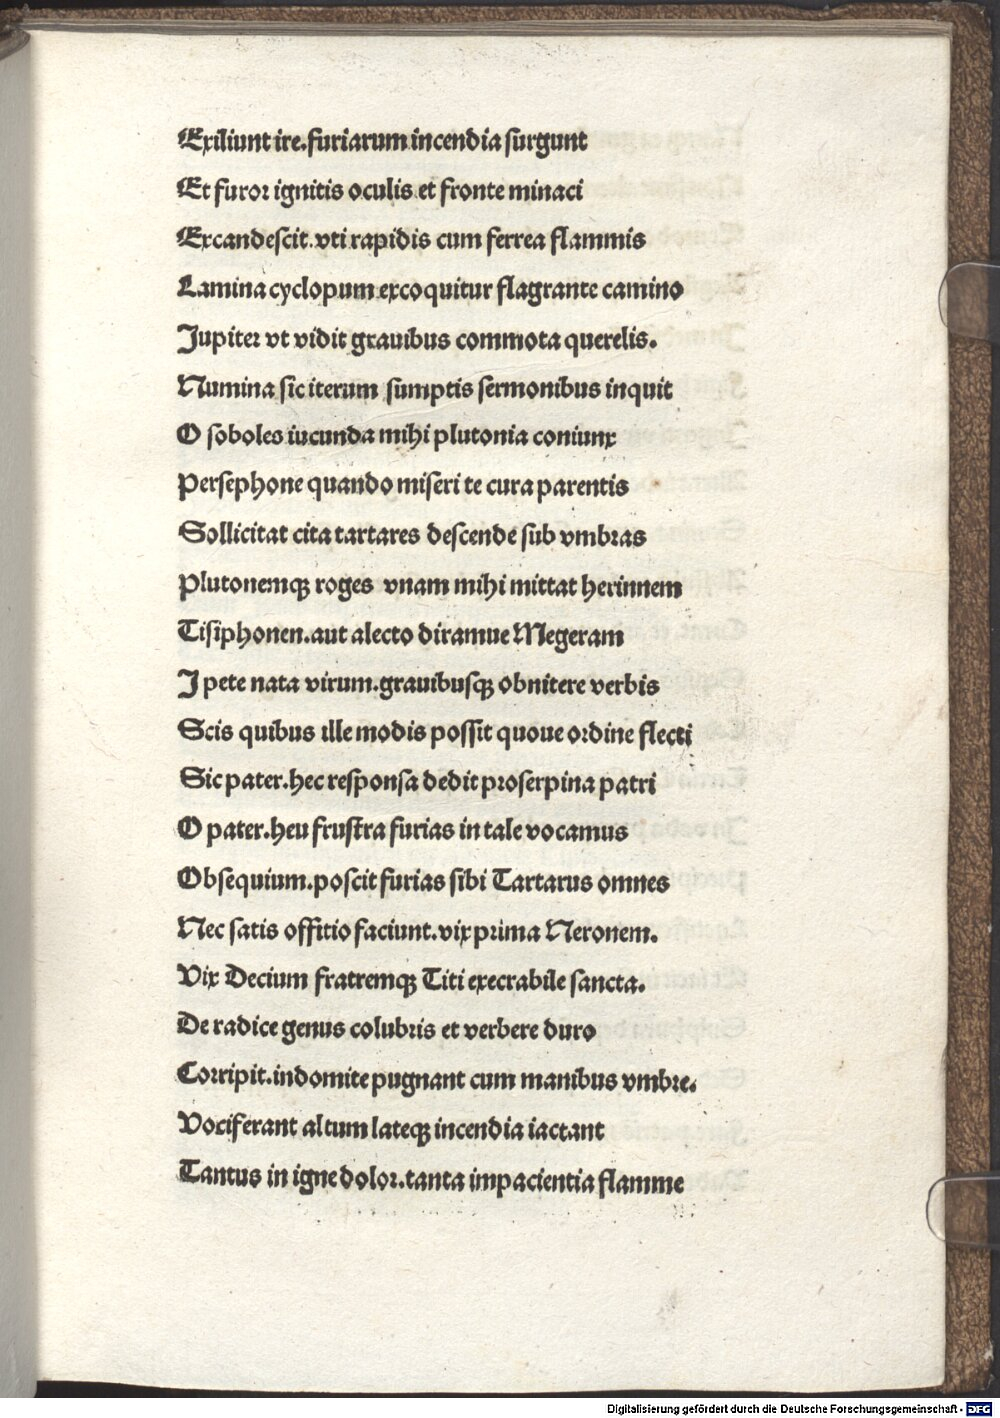 Exiliunt ire.furiarum incendia ſurgunt
Et furoꝛ ignitis oculis et fronte minaci
Excandeſcit.vti rapidis cum ferrea flammis
Lamina cyclopum excoquitur flagrante camino
Jupiter vt vidit grauibus commota querelis.
Numina ſic iterum ſumptis ſermonibus inquit
O ſoboles iucunda mihi plutonia coniunx
Perſephone quando miſeri te cura parentis
Sollicitat cita tartares deſcende ſub vmbꝛas
Plutonemqꝫ roges vnam mihi mittat herinnem
Tiſiphonen.aut alecto diramue Megeram
J pete nata virum.grauibuſqꝫ obnitere verbis
Scis quibus ille modis poſſit quoue oꝛdine flecti
Sic pater.hec reſponſa dedit pꝛoſerpina patri
O pater.heu fruſtra furias in tale vocamus
Obſequium.poſcit furias ſibi Tartarus omnes
Nec ſatis offitio faciunt.vix pꝛima Neronem.
Vix Decium fratremqꝫ Titi execrabile ſancta.
De radice genus colubꝛis et verbere duro
Coꝛripit.indomite pugnant cum manibus vmbꝛe.
Vociferant altum lateqꝫ incendia iactant
Tantus in igne doloꝛ.tanta impacientia flamme
Digitalisierung gefördert durch die Deutsche Forschungsgemeinschaft - DFG